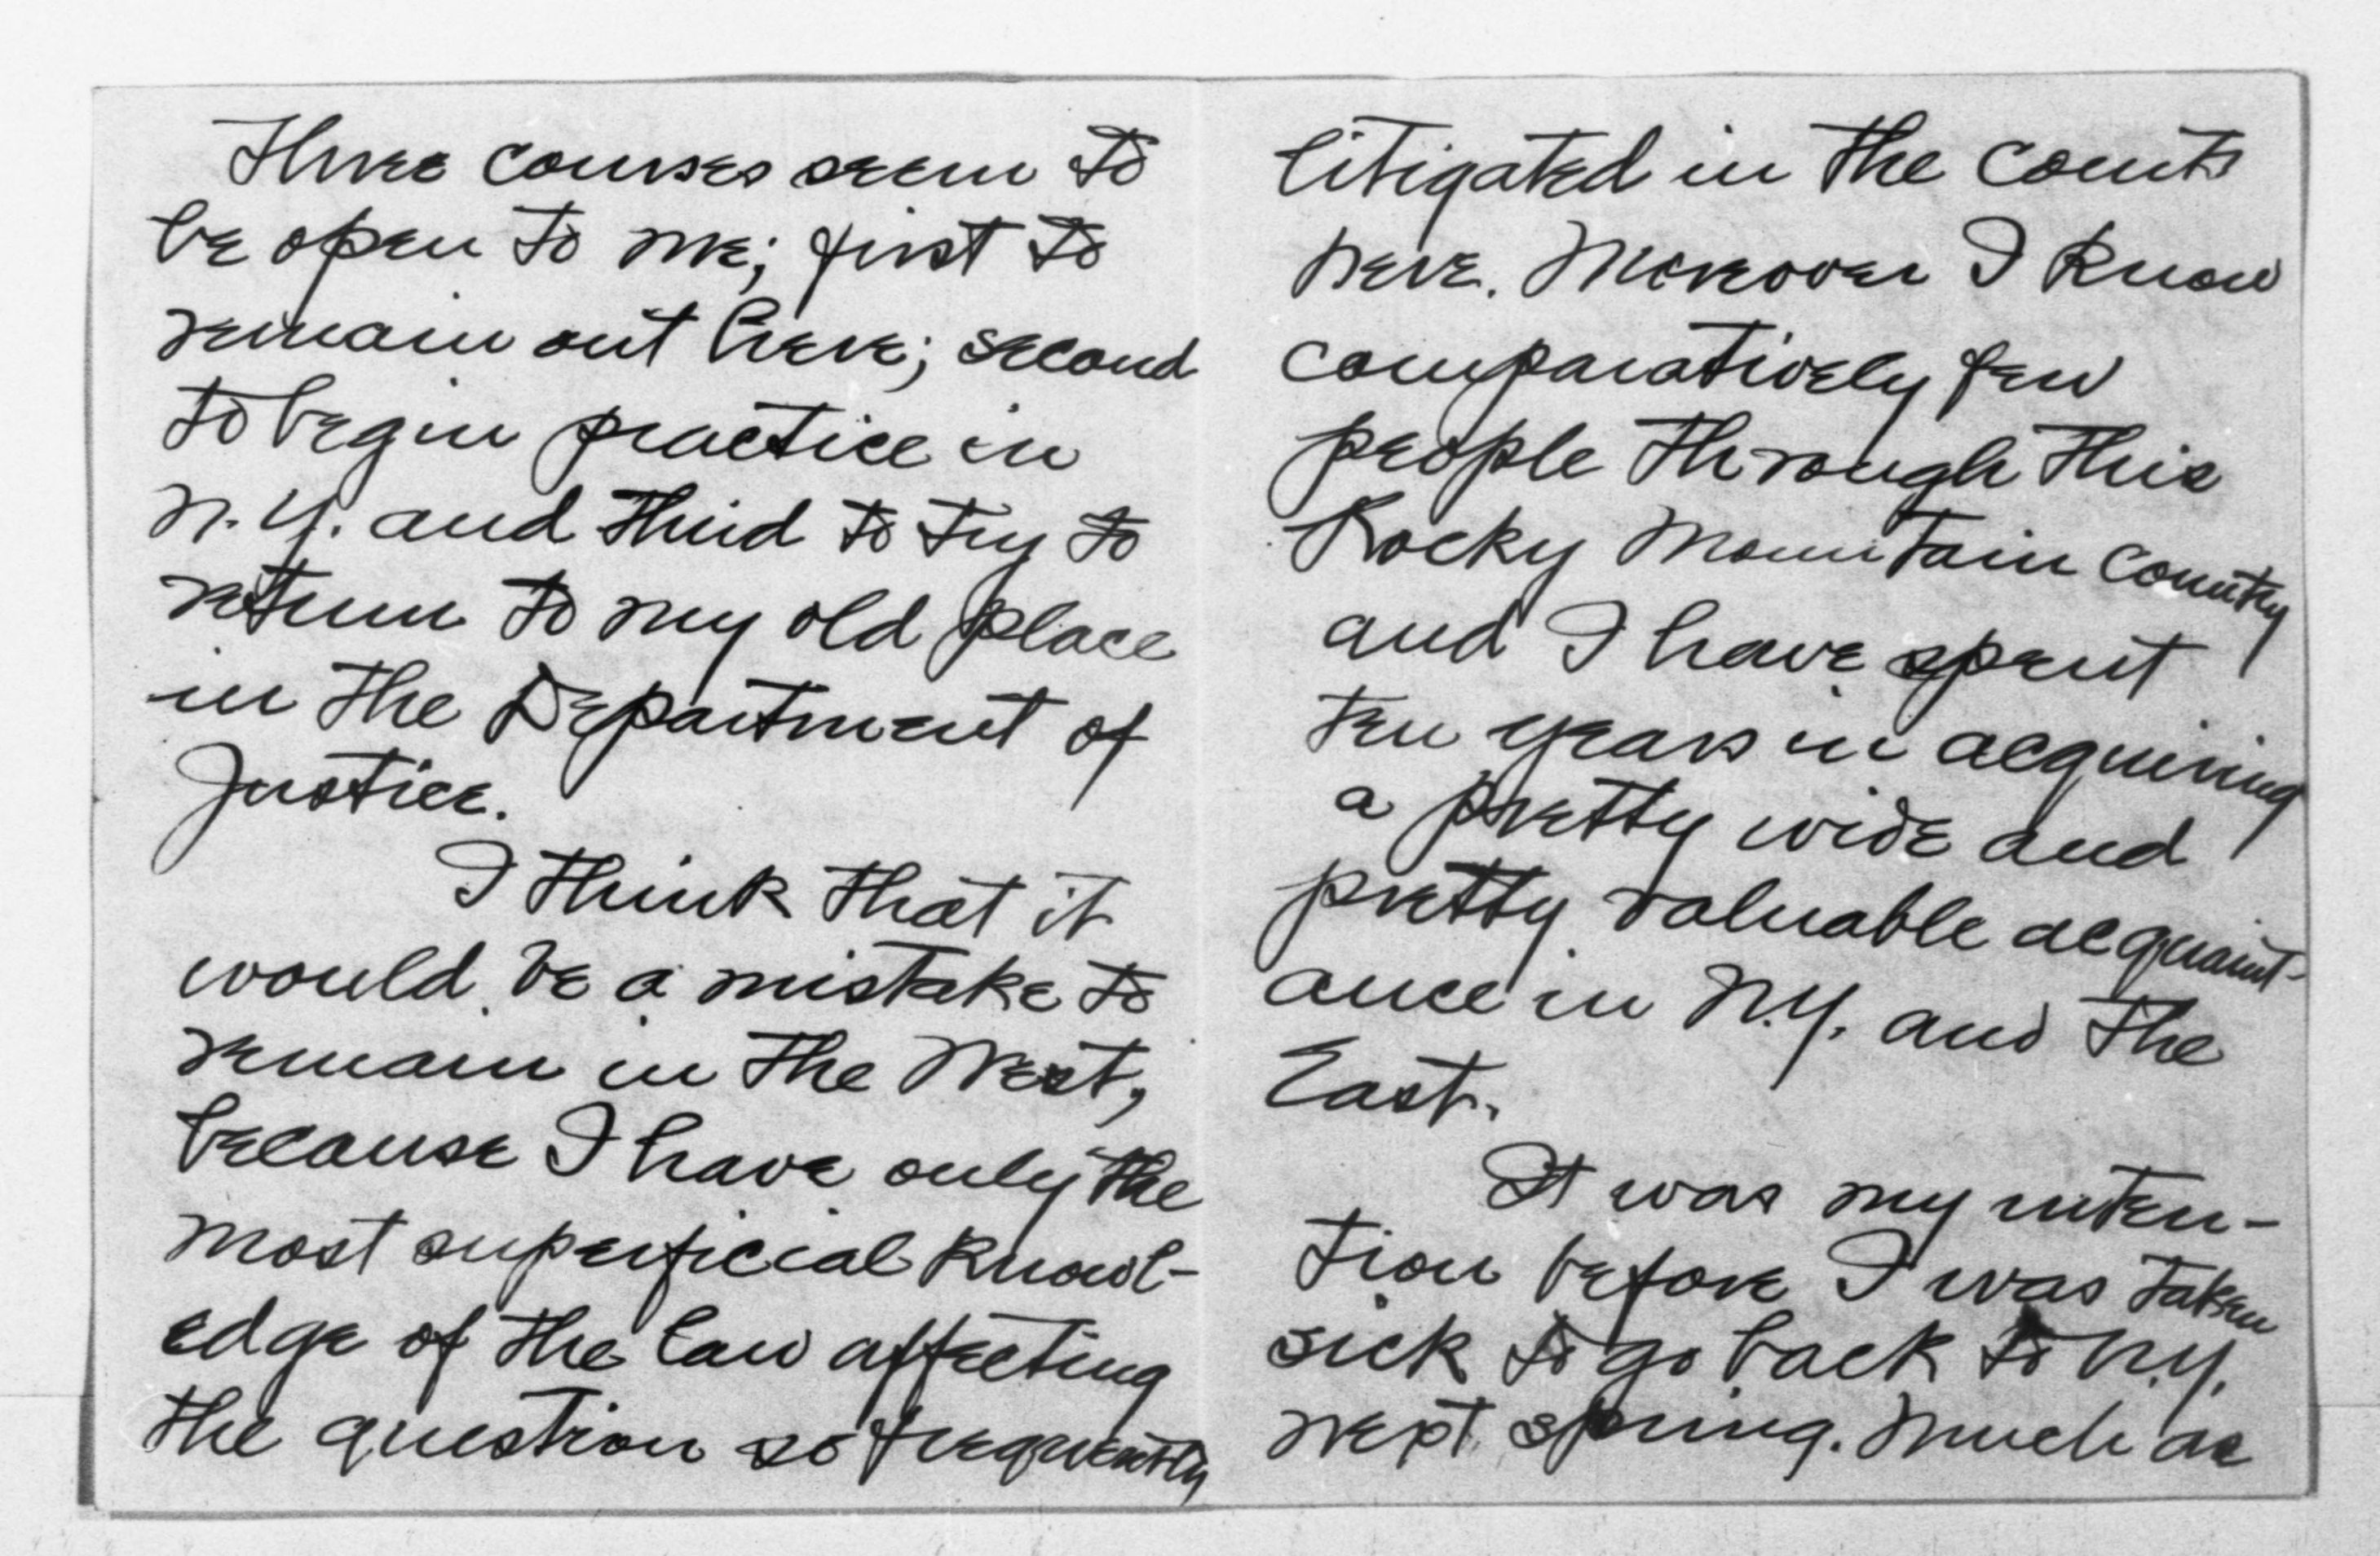 Three courses seem to
be open to me; first to
remain out here; second
to begin practice in
N.Y. and third to try to
return to my old place
in the Department of
Justice.
I think that it
would be a mistake to
remain in the West,
because I have only the
most superficial knowl-
edge of the law affecting
the question so frequently
litigated in the courts
here. Moreover I know
comparatively few
people through this
Rocky Mountain country
and I have spent
ten years in acquiring
a pretty wide and
pretty valuable acquaint-
ance in N.Y. and the
East.
It was my inten-
tion before I was taken
sick to go back to N.Y.
next spring. Much as